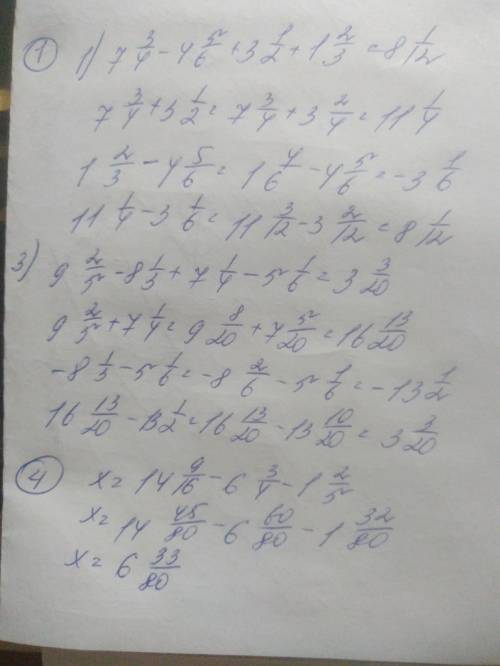 ① 1) 7 3/4 - 4 5/6 + 3 1/2 + 1 2/3 = 8 1/12
7 3/4 + 3 1/2 = 7 3/4 + 3 2/4 = 11 1/4
1 2/3 - 4 5/6 = 1 4/6 - 4 5/6 = -3 1/6
11 1/4 - 3 1/6 = 11 3/12 - 3 2/12 = 8 1/12
3) 9 2/5 - 8 1/3 + 7 1/4 - 5 1/6 = 3 3/20
9 2/5 + 7 1/4 = 9 8/20 + 7 5/20 = 16 13/20
-8 1/3 - 5 1/6 = -8 2/6 - 5 1/6 = -13 1/2
16 13/20 - 13 1/2 = 16 13/20 - 13 10/20 = 3 3/20
④ x = 14 9/16 - 6 3/4 - 1 2/5
x = 14 45/80 - 6 60/80 - 1 32/80
x = 6 33/80